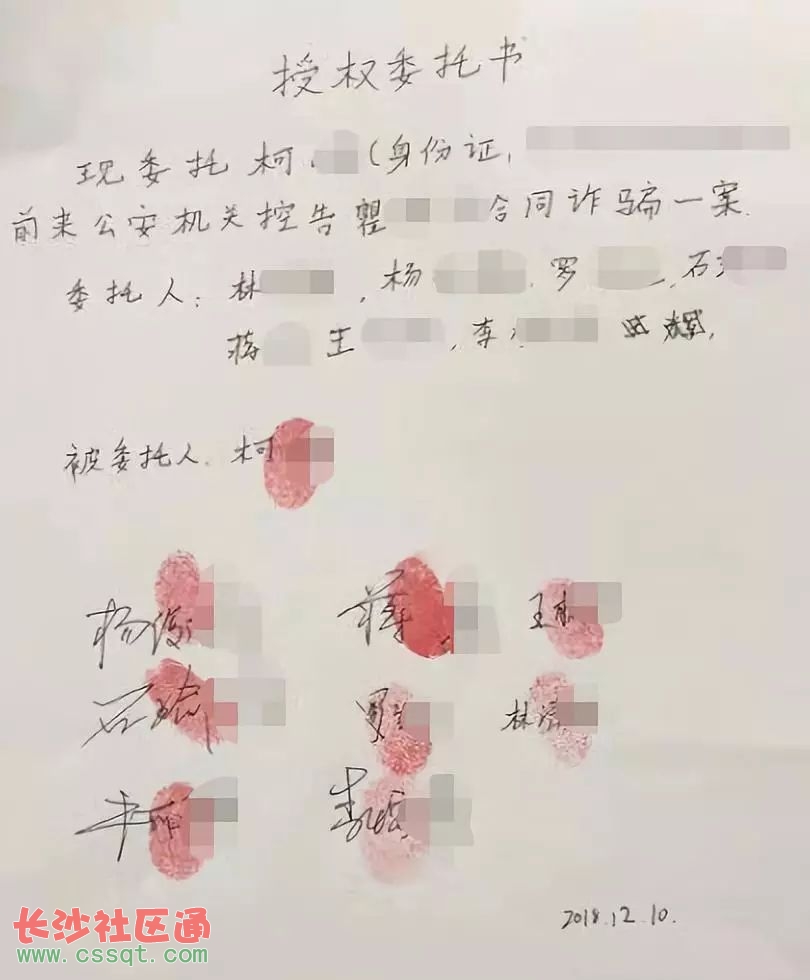 授权委托书
现委托柯 (身份证,
前来公安机关控告瞿 合同诈骗一案.
委托人: 林 , 杨 . 罗 , 石
蒋 王 , 李 辉,
被委托人. 柯
杨俊 蒋 王
石 罗 林
李
2018.12.10.
长沙社区通
www.cssqt.com